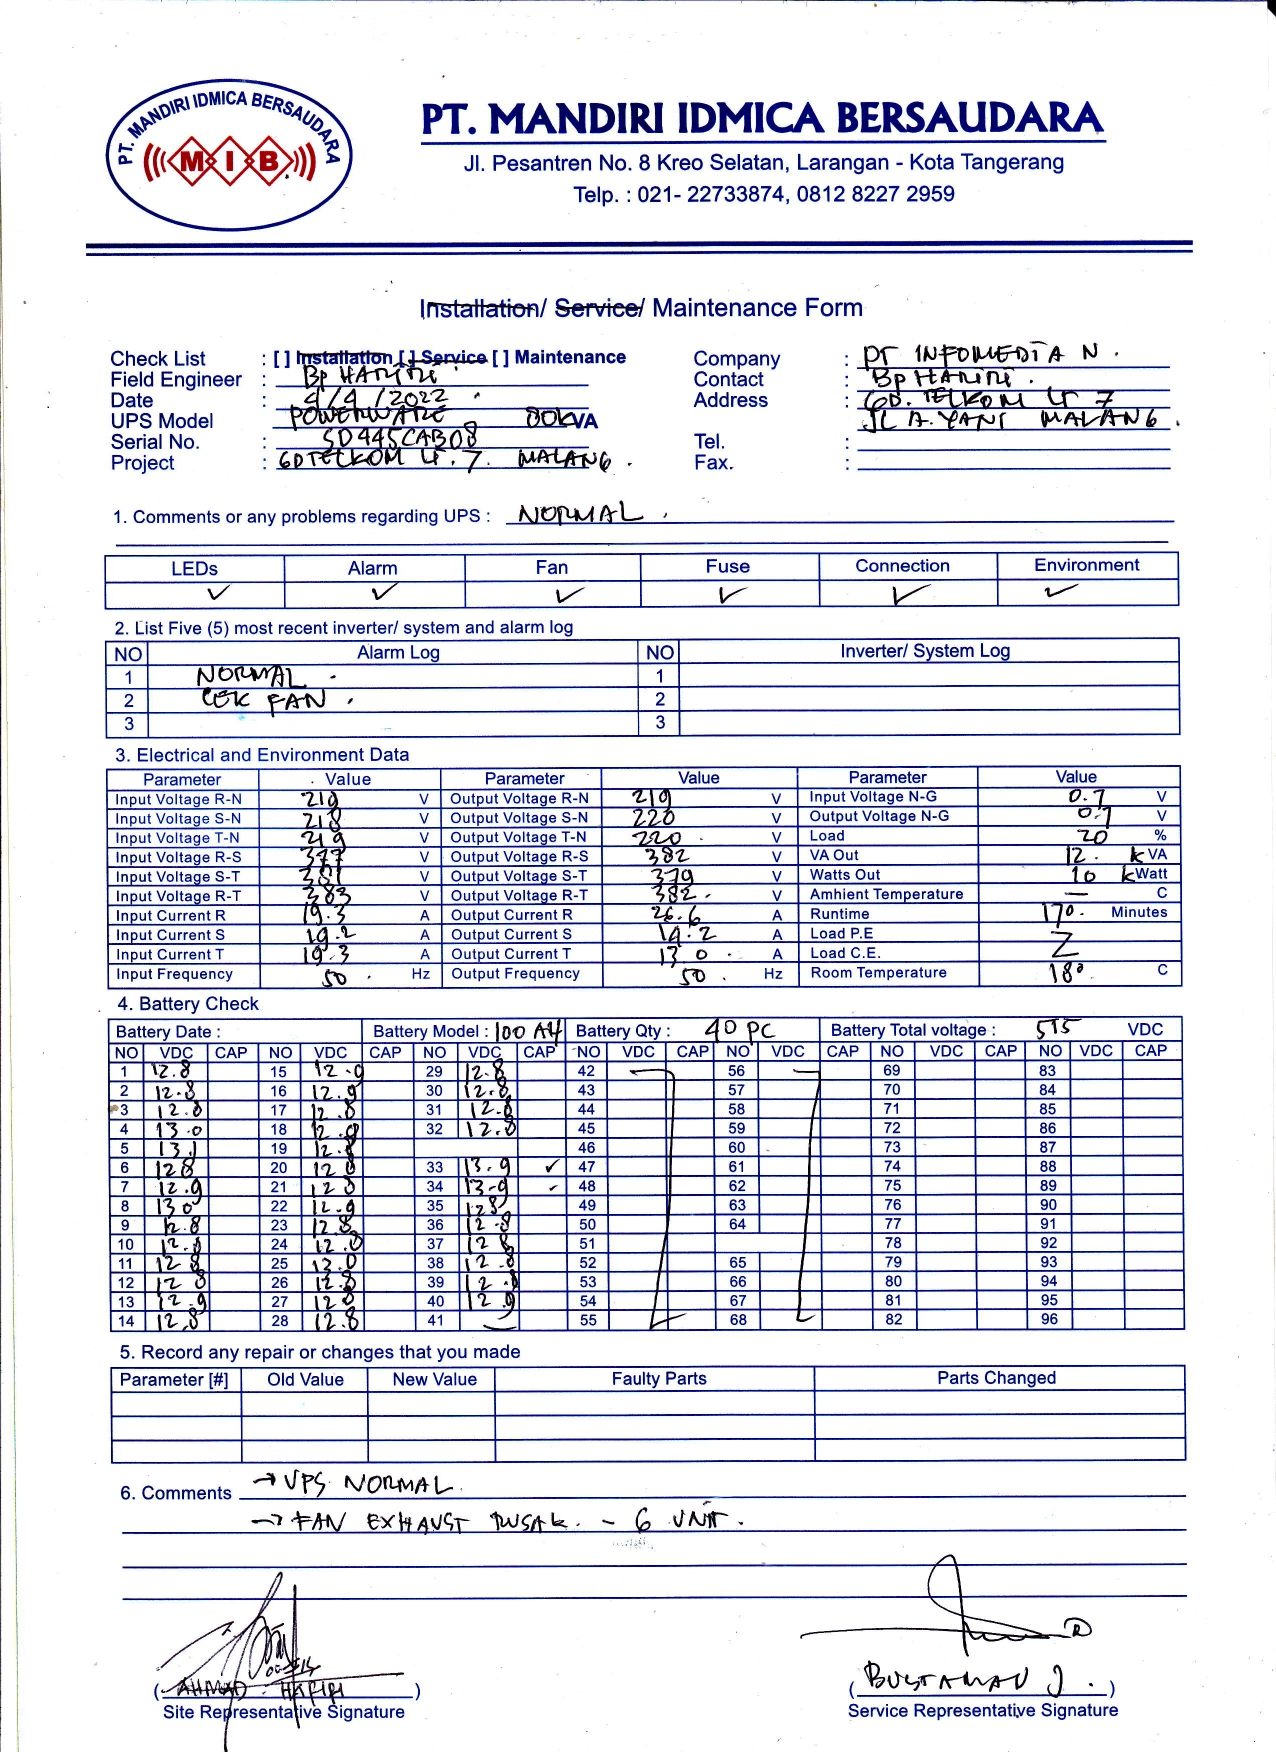 PT. MANDIRI IDMICA BERSAUDARA
M I B
PT. MANDIRI IDMICA BERSAUDARA
Jl. Pesantren No. 8 Kreo Selatan, Larangan - Kota Tangerang
Telp. : 021- 22733874, 0812 8227 2959
Installation/ Service/ Maintenance Form
Check List : [ ] Installation [ ] Service [ ] Maintenance Company : PT INFOMEDIA N.
Field Engineer : Bp HARIRI Contact : Bp HARIRI.
Date : 4/4/2022 Address : GD. TELKOM LT 7
UPS Model POWERWARE 80KVA JL A. YANI MALANG.
Serial No. : SD445CAB08 Tel. :
Project : GD TELKOM LT. 7. MALANG. Fax. :
1. Comments or any problems regarding UPS : NORMAL.
LEDs Alarm Fan Fuse Connection Environment
✓ ✓ ✓ ✓ ✓ ✓
2. List Five (5) most recent inverter/ system and alarm log
NO Alarm Log NO Inverter/ System Log
1 NORMAL 1
2 CEK FAN 2
3 3
3. Electrical and Environment Data
Parameter Value Parameter Value Parameter Value
Input Voltage R-N 219 V Output Voltage R-N 219 V Input Voltage N-G 0.7 V
Input Voltage S-N 218 V Output Voltage S-N 220 V Output Voltage N-G 0.7 V
Input Voltage T-N 219 V Output Voltage T-N 220 V Load 20 %
Input Voltage R-S 377 V Output Voltage R-S 382 V VA Out 12. kVA
Input Voltage S-T 381 V Output Voltage S-T 379 V Watts Out 10 kWatt
Input Voltage R-T 383 V Output Voltage R-T 382 V Amhient Temperature — C
Input Current R 19.3 A Output Current R 26.6 A Runtime 170. Minutes
Input Current S 19.2 A Output Current S 14.2 A Load P.E
Input Current T 19.3 A Output Current T 13.0 A Load C.E.
Input Frequency 50 Hz Output Frequency 50 Hz Room Temperature 18° C
4. Battery Check
Battery Date : Battery Model : 100 AH Battery Qty : 40 PC Battery Total voltage : 515 VDC
NO VDC CAP NO VDC CAP NO VDC CAP NO VDC CAP NO VDC CAP NO VDC CAP NO VDC CAP
1 12.8 15 12.9 29 12.8 42 56 69 83
2 12.8 16 12.9 30 12.8 43 57 70 84
3 12.8 17 12.8 31 12.8 44 58 71 85
4 13.0 18 12.9 32 12.8 45 59 72 86
5 13.1 19 12.8 46 60 73 87
6 128 20 12 8 33 13.9 ✓ 47 61 74 88
7 12.9 21 12 8 34 13.9 ✓ 48 62 75 89
8 130 22 12.9 35 128 49 63 76 90
9 12.8 23 12.8 36 12.8 50 64 77 91
10 12.8 24 12.8 37 12 8 51 78 92
11 12 8 25 38 12.8 52 65 79 93
12 12 8 26 12.8 39 12.8 53 66 80 94
13 12.9 27 12 8 40 12.9 54 67 81 95
14 12.8 28 12.8 41 55 68 82 96
5. Record any repair or changes that you made
Parameter [#] Old Value New Value Faulty Parts Parts Changed
6. Comments → UPS NORMAL
→ FAN EXHAUST RUSAK. - 6 UNIT.
( AHMAD HAFIPI ) ( BUSTAMAN J. )
Site Representative Signature Service Representative Signature